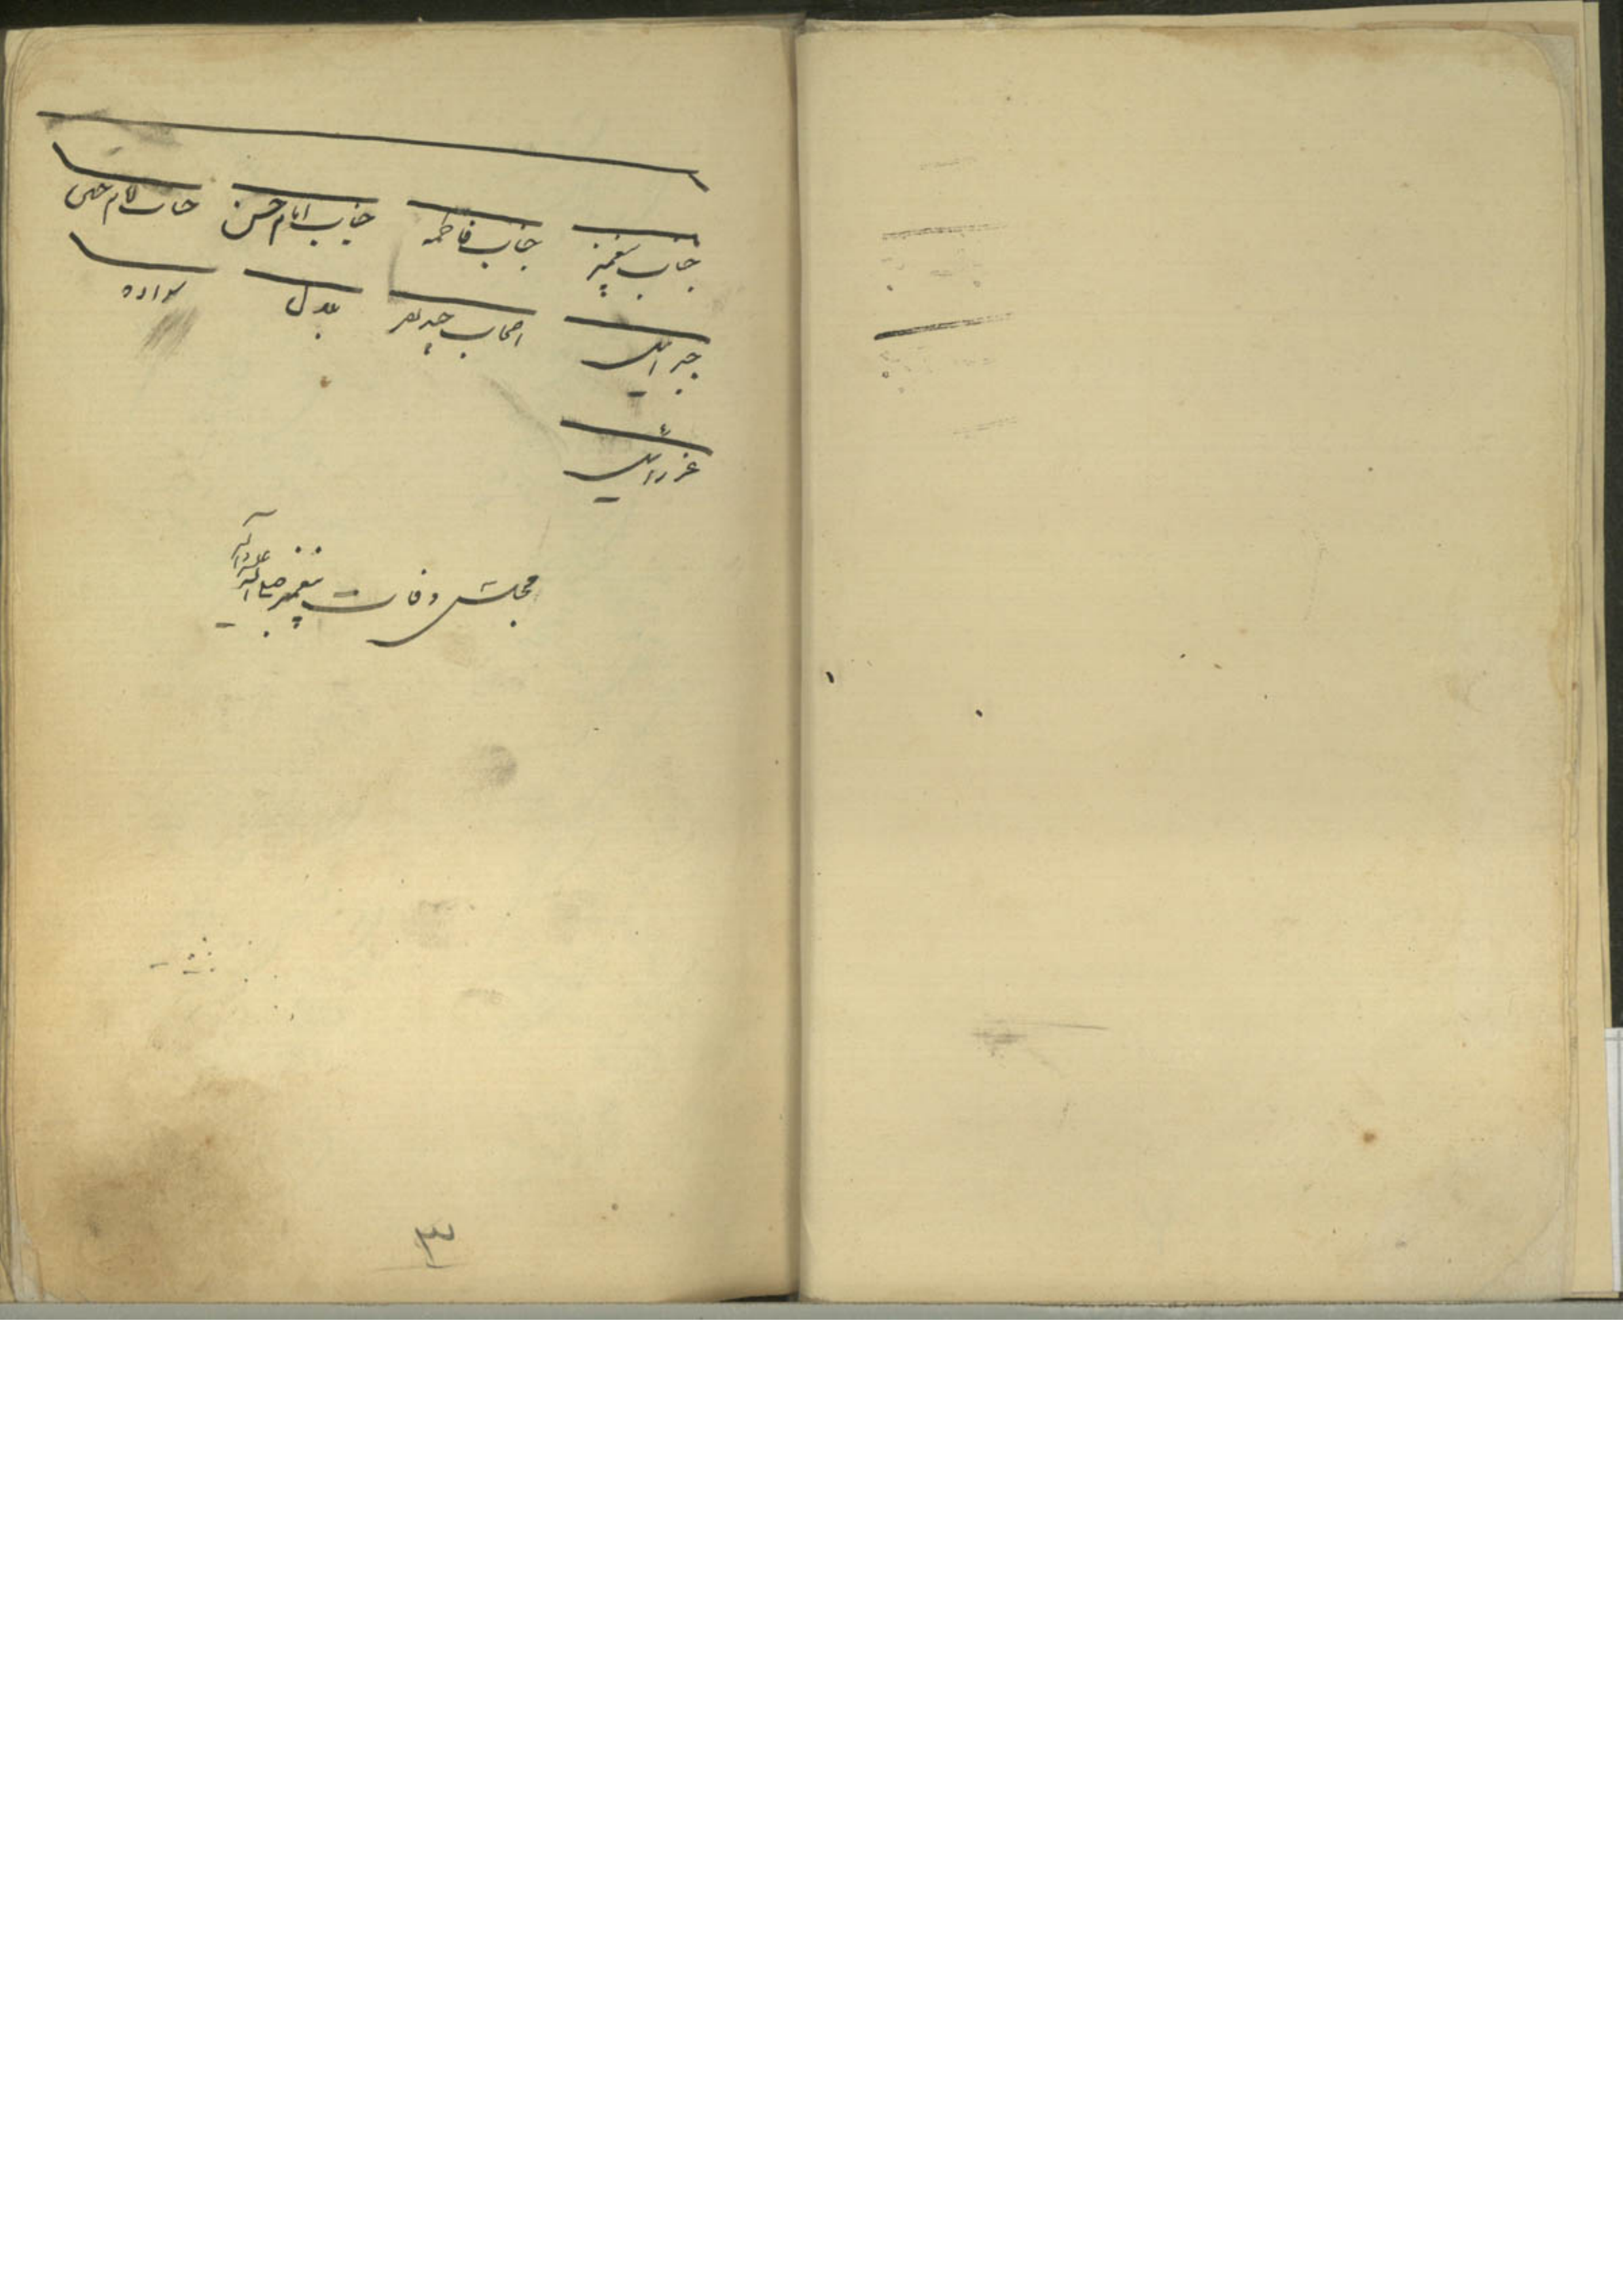 جناب پیغمبر جناب فاطمه جناب امام حسن جناب امام حسین
جبرائیل اصحاب چند نفر بلال سواده
عزرائیل
مجلس وفات پیغمبر صلی الله علیه و آله
۳